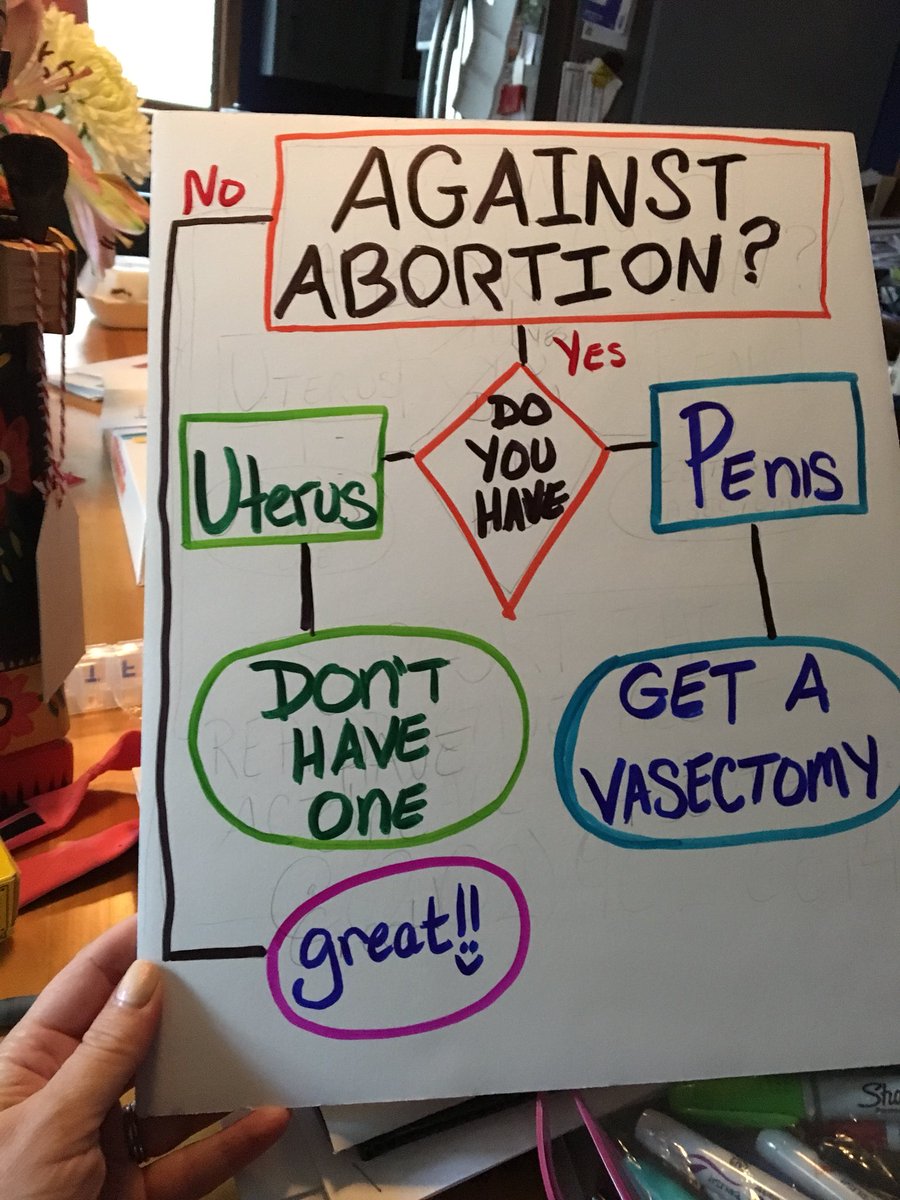 No
AGAINST
ABORTION?
Yes
DO
YOU
HAVE
Uterus
PENIS
DON'T
HAVE
ONE
GET A
VASECTOMY
great!!
Sha